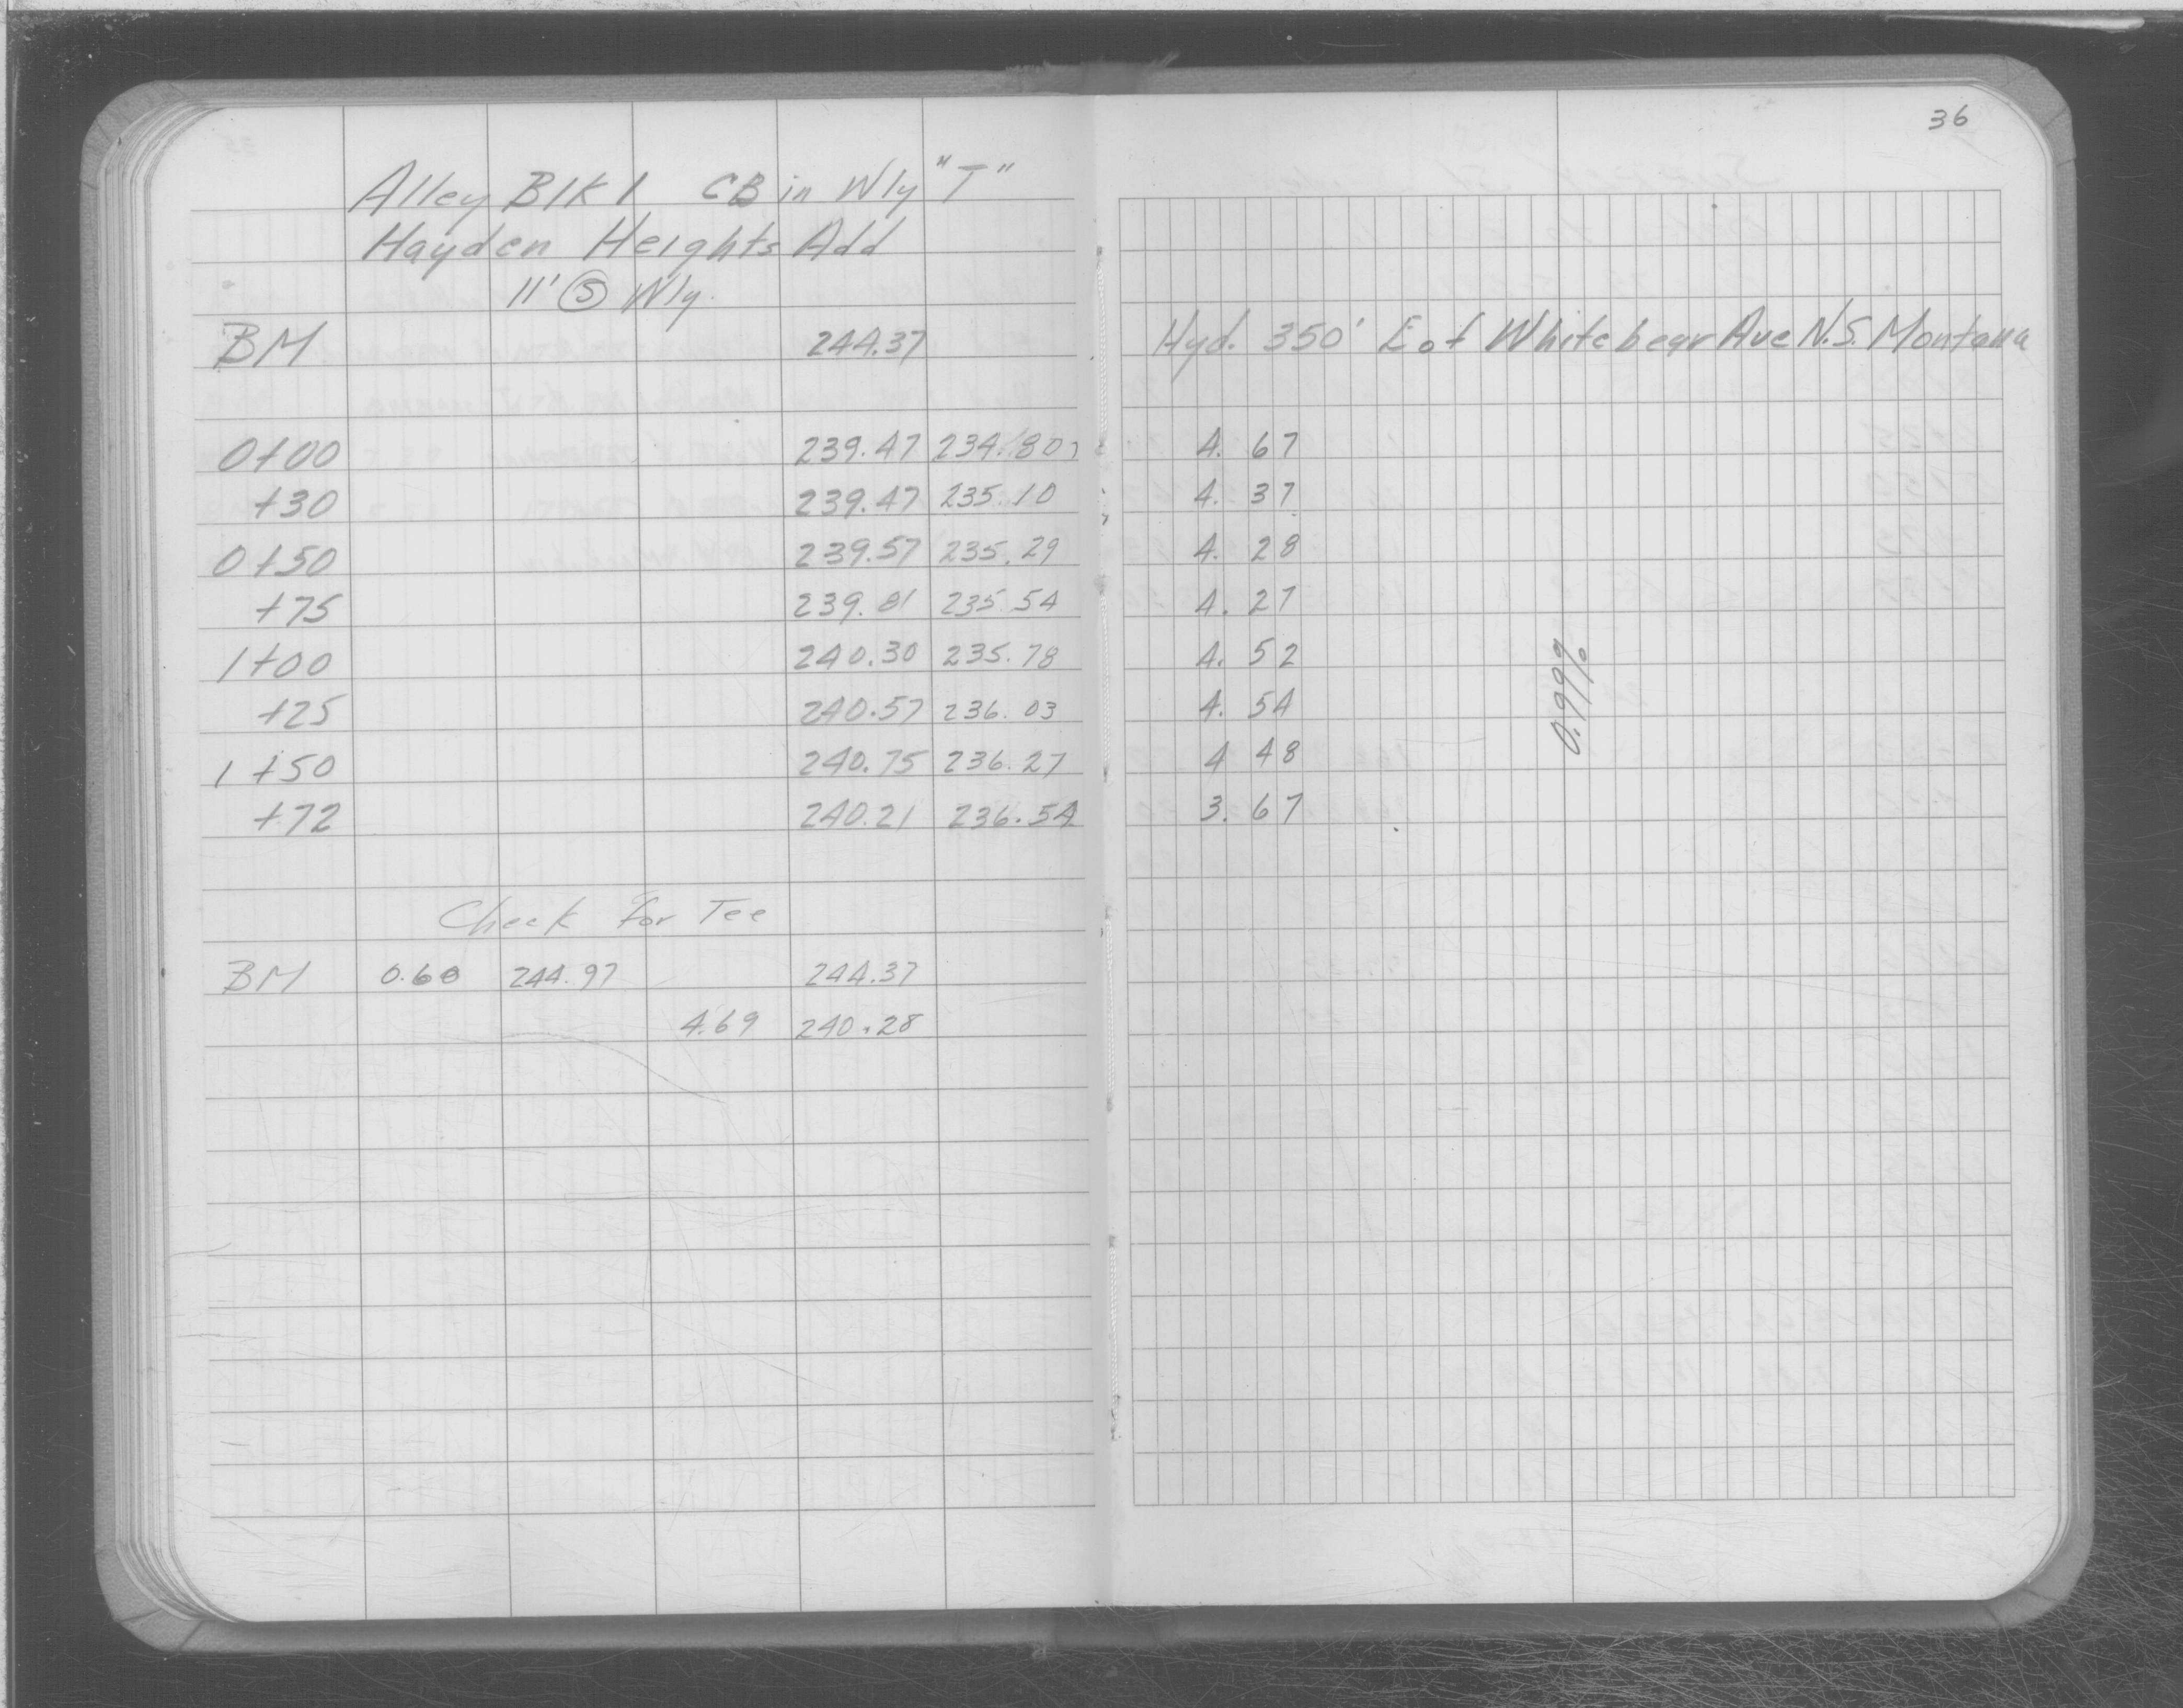 36
Alley Blk 1 CB in Wly "T"
Hayden Heights Add
11' Ⓢ Wly.
BM 244.37 Hyd. 350' E of Whitebear Ave N.S. Montana
0+00 239.47 234.80 4.67
+30 239.47 235.10 4.37
0+50 239.57 235.29 4.28
+75 239.81 235.54 4.27
1+00 240.30 235.78 4.52
+25 240.57 236.03 4.54
1+50 240.75 236.27 4 48
+72 240.21 236.54 3.67
0.99%
Check for Tee
BM 0.60 244.97 244.37
4.69 240.28